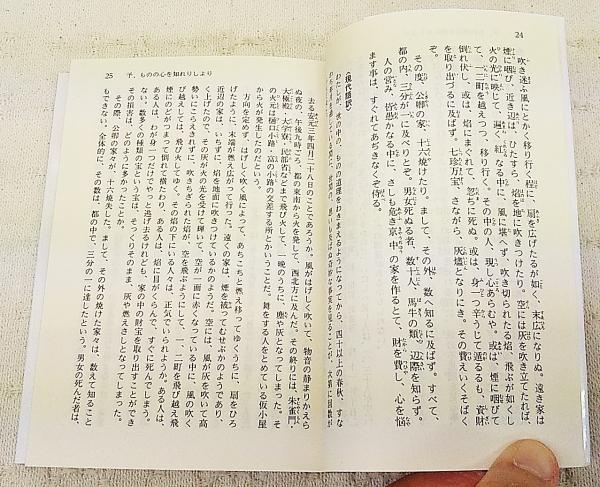 24
吹き迷ふ風にとかく移り行く程に、扇を広げたるが如く、末広になりぬ。遠き家は
煙に咽び、近き辺は、ひたすら、焔を地に吹きつけたり。空には灰を吹き立てたれば、
火の光に映じて、遍く紅なる中に、風に堪へず、吹き切られたる焔、飛ぶが如くし
て、一二町を越えつつ、移り行く。その中の人、現し心あらむや。或は、煙に咽びて
倒れ伏し、或は、焔にまぐれて、忽ちに死ぬ。或は、身一つ辛うじて遁るるも、資財
を取り出づるに及ばず。七珍万宝、さながら、灰燼となりにき。その費えいくそばく
ぞ。
その度、公卿の家、十六焼けたり。まして、その外、数へ知るに及ばず。すべて、
都の内、三分が一に及べりとぞ。男女死ぬる者、数十人、馬牛の類、辺際を知らず。
人の営み、皆愚かなる中に、さしも危き京中の家を作るとて、財を費し、心を悩
ます事は、すぐれてあぢきなくぞ侍る。
〔現代語訳〕
わたしが、世の中の、ものの道理をわきまえるようになってから、四十以上の春秋、すな
25 予、ものの心を知れりしより
去る安元三年四月二十八日のことであろうか。風がはげしく吹いて、物音の静まりかえら
ぬ夜の、午後九時ごろ、都の東南から火を発して、西北方に及んだ。その終りには、朱雀門・
大極殿・大学寮・民部省などまで飛び火して、一晩のうちに、塵や灰となってしまった。そ
の火元は樋口小路・富の小路の交差する所とかいうことだ。舞をする人をとめている仮小屋
から火が発生したのだという。
方向を定めず、はげしく吹く風によって、あちこちと燃え移ってゆくうちに、扇をひろ
げたように、末端が燃え広がって行った。遠くの家は、煙を被ってむせぶかのようであり、
近辺の家は、いちずに、焔を地面に吹きつけているかのようだ。空には、風が灰を吹いて高
く上げたので、その灰が火の光を受けて輝いて、空が一面に赤くなっている中に、風の吹く
勢いにこらえきれずに、吹きちぎられた焔が、空を飛ぶようにして、一、二町を飛び越え飛
び越えしては、飛び火してゆく。その焔の下にいる人々は、正気でいられようか。ある人は、
煙のためにむせんでしまって倒れて横たわり、ある人は、焔に目がくらんで、すぐに死んでしまう。
ある人は、わが身一つだけでやっと逃げ去るけれども、家の中の財宝を取り出すことができ
ない。数多くの種類の宝という宝は、そっくりそのまま、灰や燃えさしとなってしまった。
その損害は、どのように多かったことか。
その際、公卿の家々が、十六焼失した。まして、その外の焼けた家々は、数えて知ること
もできない。全体的に、その数は、都の中で、三分の一に達したという。男女の死んだ者は、